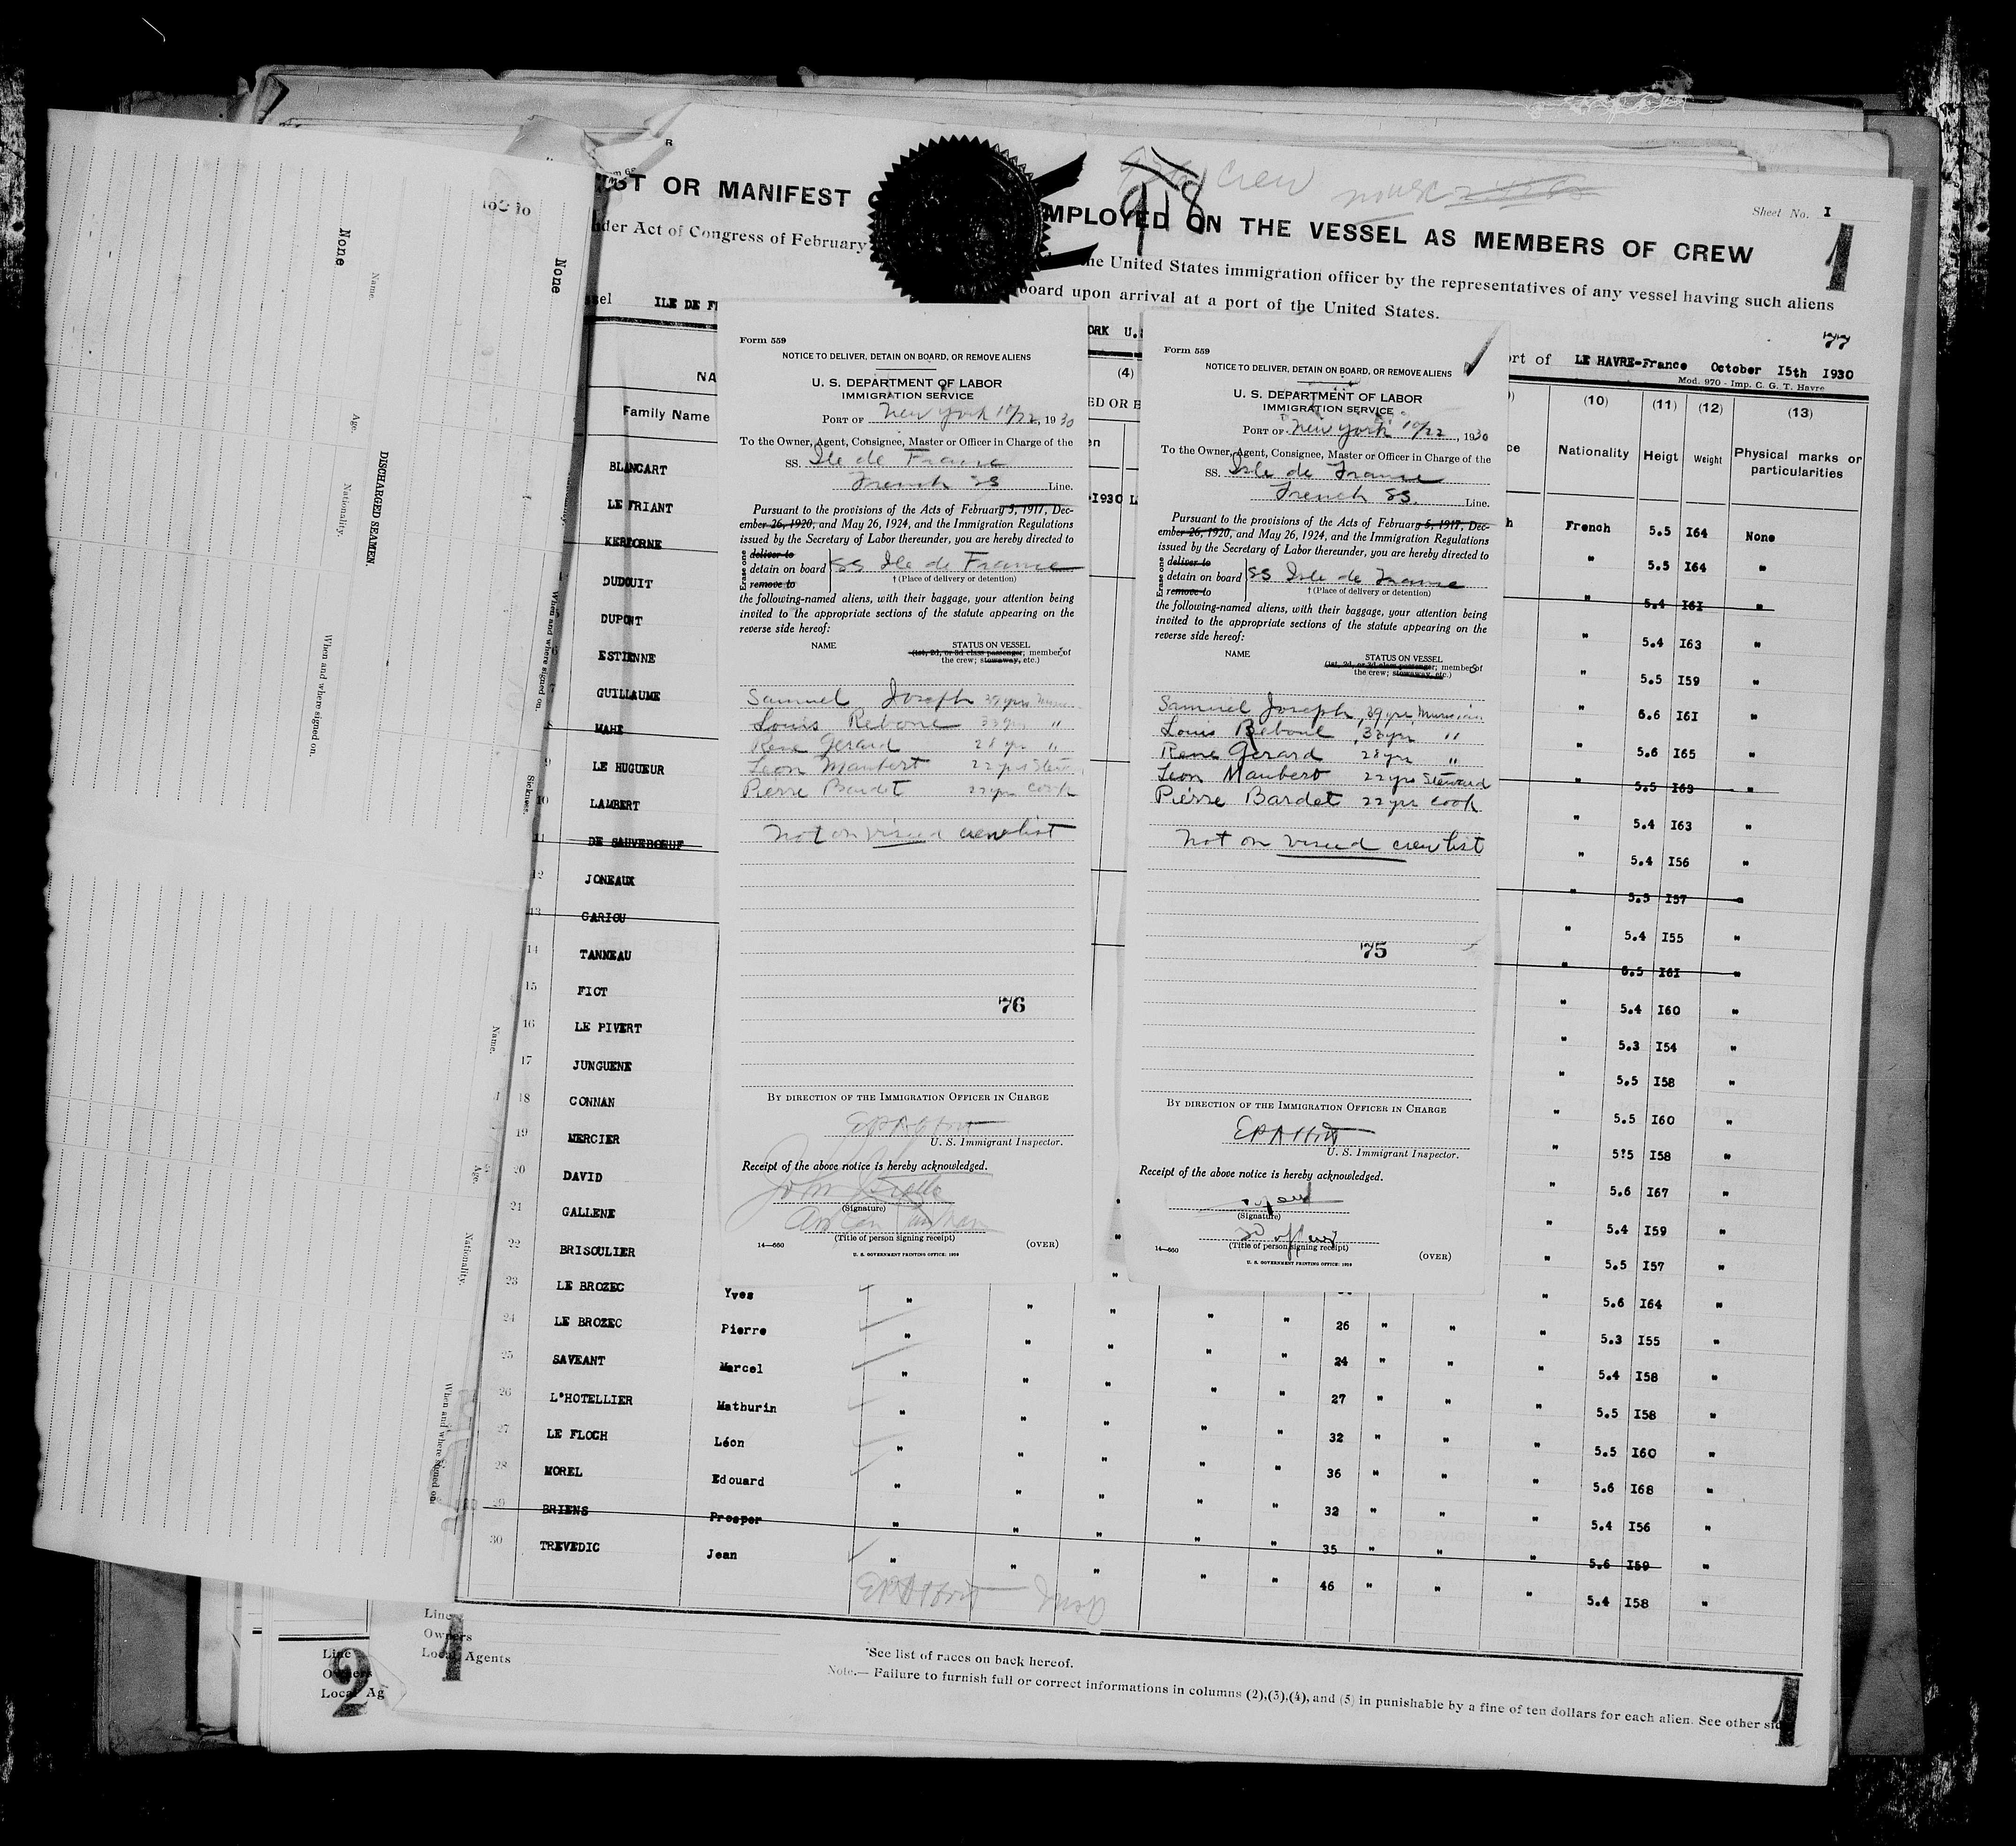 Sheet No. I
918 Crew
LIST OR MANIFEST EMPLOYED ON THE VESSEL AS MEMBERS OF CREW
1
nder Act of Congress of February the United States immigration officer by the representatives of any vessel having such aliens
board upon arrival at a port of the United States.
77
ssel ILE DE FR ORK U.S ort of LE HAVRE-France October I5th I930
Mod. 970 - Imp. C. G. T. Havre
NA (4) ED OR E (10) (11) (12) (13)
Family Name Nationality Heigt Weight Physical marks or
particularities
I930 L
BLANCART French 5.5 I64 None
LE FRIANT " 5.5 I64 "
KERBORNE " 5.4 I6I "
DUDOUIT " 5.4 I63 "
DUPONT " 5.5 I59 "
ESTIENNE " 6.6 I6I "
GUILLAUME " 5.6 I65 "
MAHE " 5.5 I63 "
9 LE HUGUEUR " 5.4 I63 "
10 LAMBERT " 5.4 I56 "
11 DE SAUVEBOEUF " 5.5 I57 "
12 JONEAUX " 5.4 I55 "
13 CARIOU " 6.5 I6I "
14 TANNEAU " 5.4 I60 "
15 FIOT " 5.3 I54 "
16 LE PIVERT " 5.5 I58 "
17 JUNGUENE " 5.5 I60 "
18 CONNAN " 5?5 I58 "
19 MERCIER " 5.6 I67 "
20 DAVID " 5.4 I59 "
21 GALLENE " 5.5 I57 "
22 BRISOULIER " 5.6 I64 "
23 LE BROZEC Yves " " " " " " " " 5.3 I55 "
24 LE BROZEC Pierre " " " " " 26 " " " 5.4 I58 "
25 SAVEANT Marcel " " " " " 24 " " " 5.5 I58 "
26 L'HOTELLIER Mathurin " " " " " 27 " " " 5.5 I60 "
27 LE FLOCH Léon " " " " " 32 " " " 5.6 I68 "
28 MOREL Edouard " " " " " 36 " " " 5.4 I56 "
29 BRIENS Prosper " " " " " 32 " " " 5.6 I59 "
30 TREVEDIC Jean " " " " " 35 " " " 5.4 I58 "
46
*See list of races on back hereof.
Note.— Failure to furnish full or correct informations in columns (2),(3),(4), and (5) in punishable by a fine of ten dollars for each alien. See other sid
1
Line
Owners
Local Agents
1
Line
Owners
Local Ag
2
Form 559
NOTICE TO DELIVER, DETAIN ON BOARD, OR REMOVE ALIENS
U. S. DEPARTMENT OF LABOR
IMMIGRATION SERVICE
PORT OF New York 10/22, 1930
To the Owner, Agent, Consignee, Master or Officer in Charge of the
SS. Ile de France
French SS Line.
Pursuant to the provisions of the Acts of February 5, 1917, Dec-
ember 26, 1920, and May 26, 1924, and the Immigration Regulations
issued by the Secretary of Labor thereunder, you are hereby directed to
Erase one
deliver to
detain on board SS Ile de France
remove to † (Place of delivery or detention)
the following-named aliens, with their baggage, your attention being
invited to the appropriate sections of the statute appearing on the
reverse side hereof:
NAME STATUS ON VESSEL
(1st, 2d, or 3d class passenger; member of
the crew; stowaway, etc.)
Samuel Joseph 39 yrs
Louis Reboul 33 yrs "
Rene Gerard 28 yrs "
Leon Maubert 22 yrs
Pierre Bardet 22 yrs Cook
not on visaed crew list
76
BY DIRECTION OF THE IMMIGRATION OFFICER IN CHARGE
EPAbbott
U. S. Immigrant Inspector.
Receipt of the above notice is hereby acknowledged.
John
(Signature)
(Title of person signing receipt)
14—660 (OVER)
U. S. GOVERNMENT PRINTING OFFICE: 1930
Form 559
NOTICE TO DELIVER, DETAIN ON BOARD, OR REMOVE ALIENS
U. S. DEPARTMENT OF LABOR
IMMIGRATION SERVICE
PORT OF New York 10/22, 1930
To the Owner, Agent, Consignee, Master or Officer in Charge of the
SS. Isle de France
French SS. Line.
Pursuant to the provisions of the Acts of February 5, 1917, Dec-
ember 26, 1920, and May 26, 1924, and the Immigration Regulations
issued by the Secretary of Labor thereunder, you are hereby directed to
Erase one
deliver to
detain on board SS Isle de France
remove to † (Place of delivery or detention)
the following-named aliens, with their baggage, your attention being
invited to the appropriate sections of the statute appearing on the
reverse side hereof:
NAME STATUS ON VESSEL
(1st, 2d, or 3d class passenger; members of
the crew; stowaway, etc.)
Samuel Joseph, 39 yrs Musician
Louis Reboul, 33 yrs "
Rene Gerard 28 yrs "
Leon Maubert 22 yrs Steward
Pierre Bardet 22 yrs Cook
not on visaed crew list
75
BY DIRECTION OF THE IMMIGRATION OFFICER IN CHARGE
EPAbbott
U. S. Immigrant Inspector.
Receipt of the above notice is hereby acknowledged.
(Signature)
(Title of person signing receipt)
14—660 (OVER)
U. S. GOVERNMENT PRINTING OFFICE: 1930
DISCHARGED SEAMEN.
Name. Age. Nationality. When and where signed on.
None
None
When and where signed on. Sickness.
Name. Age. Nationality. When and where signed on